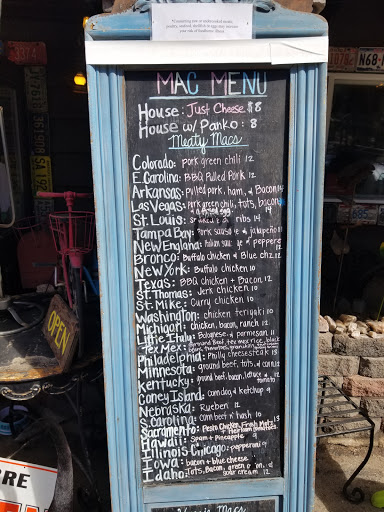 *Consuming raw or undercooked meats,
poultry, seafood, shellfish or eggs may increase
your risk of foodborne illness
MAC MENU
House: Just Cheese $8
House w/ Panko: 8
Meaty Macs
Colorado: pork green chili 12
E. Carolina: BBQ Pulled Pork 12
Arkansas: pulled pork, ham, & Bacon 14
Las Vegas: Pork green chili, tots, bacon
& a fried egg 14
St. Louis: ribs 14
Tampa Bay: Pork sausage & jalapeño 11
New England: Italian sausage & peppers 12
Bronco: Buffalo Chicken & Blue chz 12
New York: Buffalo chicken 10
Texas: BBQ chicken + Bacon 12
St. Thomas: Jerk chicken 10
St. Mike: Curry chicken 10
Washington: chicken teriyaki 10
Michigan: chicken, bacon, ranch 12
Little Italy: Bolognese & parmesan 11
Tex Mex: Ground Beef, tex mex rice, black
beans, tomatoes, green chili, onion
Philadelphia: Philly cheesesteak 13
Minnesota: ground beef, tots, & corn 12
Kentucky: ground beef, bacon, lettuce &
tomato 12
Coney Island: corn dog & ketchup 9
Nebraska: Rueben 12
S. Carolina: corn beef n' hash 10
Sacramento: Pesto Chicken, Fresh Motz
+ Heirloom tomatoes
Hawaii: Spam + Pineapple 9
Illinois Chicago: pepperoni 9
Iowa: bacon + blue cheese
Idaho: Tots, Bacon, green onion
sour cream 12
Macs
OPEN
RRE
N68-